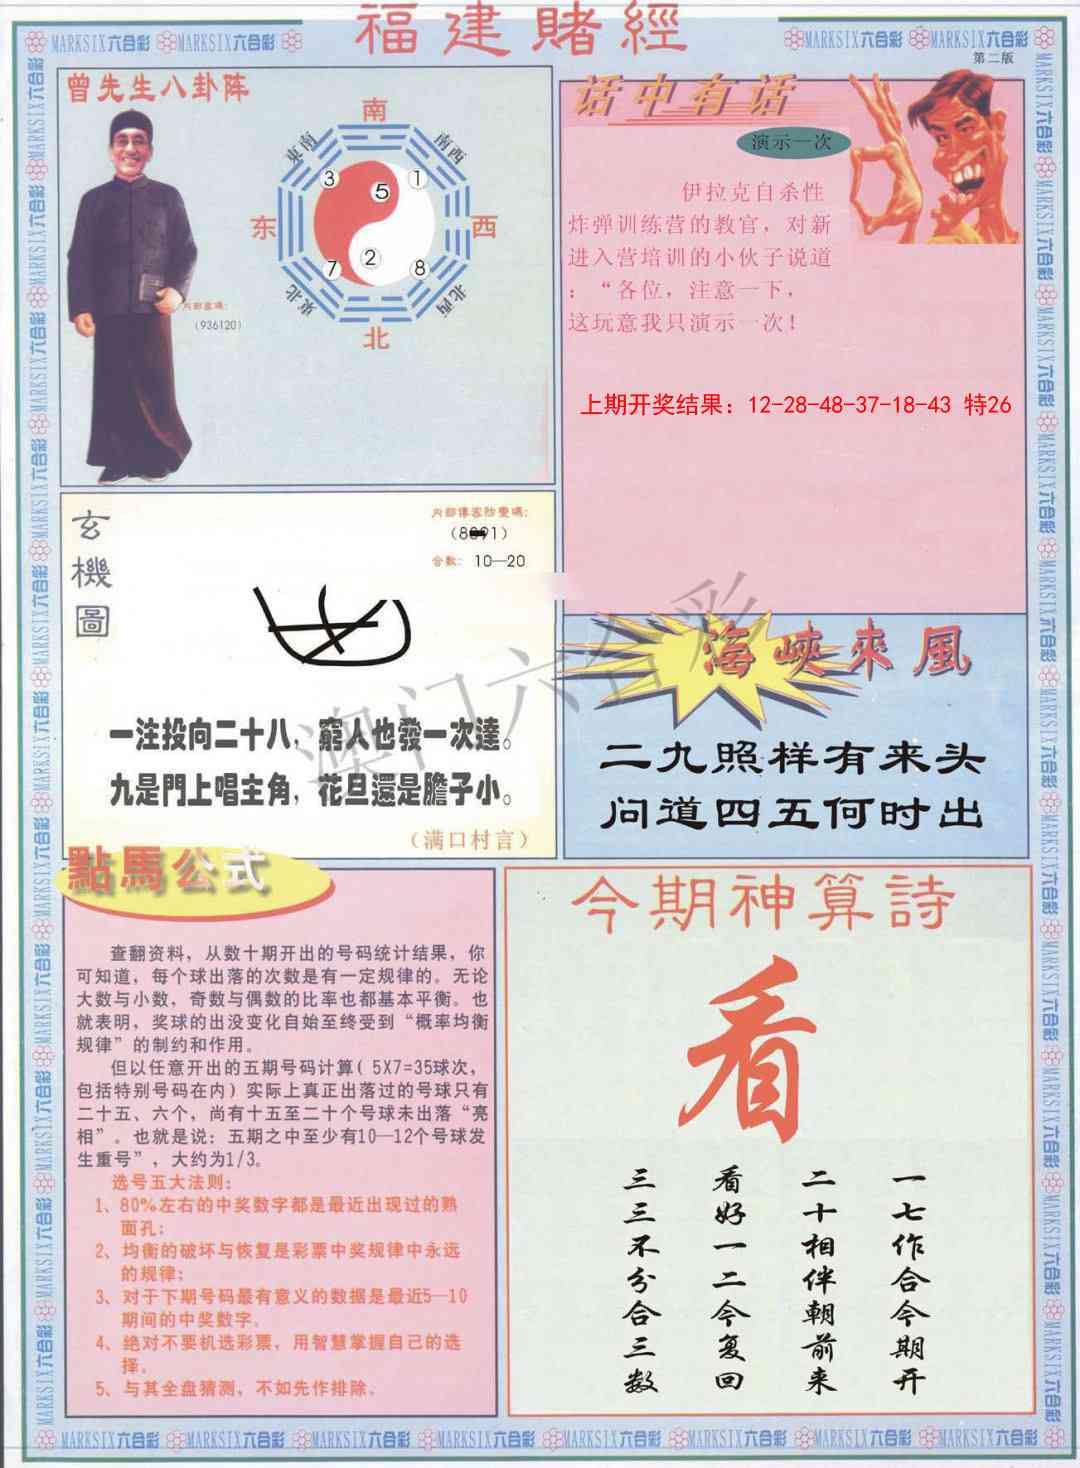 福建賭經
MARKSIX六合彩 MARKSIX六合彩
MARKSIX六合彩 MARKSIX六合彩
第二版
曾先生八卦阵
南
東南
南西
3
5
1
东
西
7
2
8
東北
北西
北
内部玄碼：
（936120）
话中有话
演示一次
伊拉克自杀性
炸弹训练营的教官，对新
进入营培训的小伙子说道
：“各位，注意一下，
这玩意我只演示一次！
上期开奖结果：12-28-48-37-18-43 特26
玄機圖
内部傳密防變碼：
合数：10—20
一注投向二十八，窮人也發一次達。
九是門上唱主角，花旦還是膽子小。
（满口村言）
澳门六合彩
海峽來風
二九照样有来头
问道四五何时出
點馬公式
查翻资料，从数十期开出的号码统计结果，你
可知道，每个球出落的次数是有一定规律的。无论
大数与小数，奇数与偶数的比率也都基本平衡。也
就表明，奖球的出没变化自始至终受到“概率均衡
规律”的制约和作用。
但以任意开出的五期号码计算（5X7=35球次，
包括特别号码在内）实际上真正出落过的号球只有
二十五、六个，尚有十五至二十个号球未出落“亮
相”。也就是说：五期之中至少有10—12个号球发
生重号”，大约为1/3。
选号五大法则：
1、80%左右的中奖数字都是最近出现过的熟
面孔；
2、均衡的破坏与恢复是彩票中奖规律中永远
的规律；
3、对于下期号码最有意义的数据是最近5—10
期间的中奖数字。
4、绝对不要机选彩票，用智慧掌握自己的选
择。
5、与其全盘猜测，不如先作排除。
今期神算詩
看
一七作合今期开
二十相伴朝前来
看好一二今复回
三三不分合三数
MARKSIX六合彩 MARKSIX六合彩 MARKSIX六合彩 MARKSIX六合彩 MARKSIX六合彩 MARKSIX六合彩 MARKSIX六合彩 MARKSIX六合彩